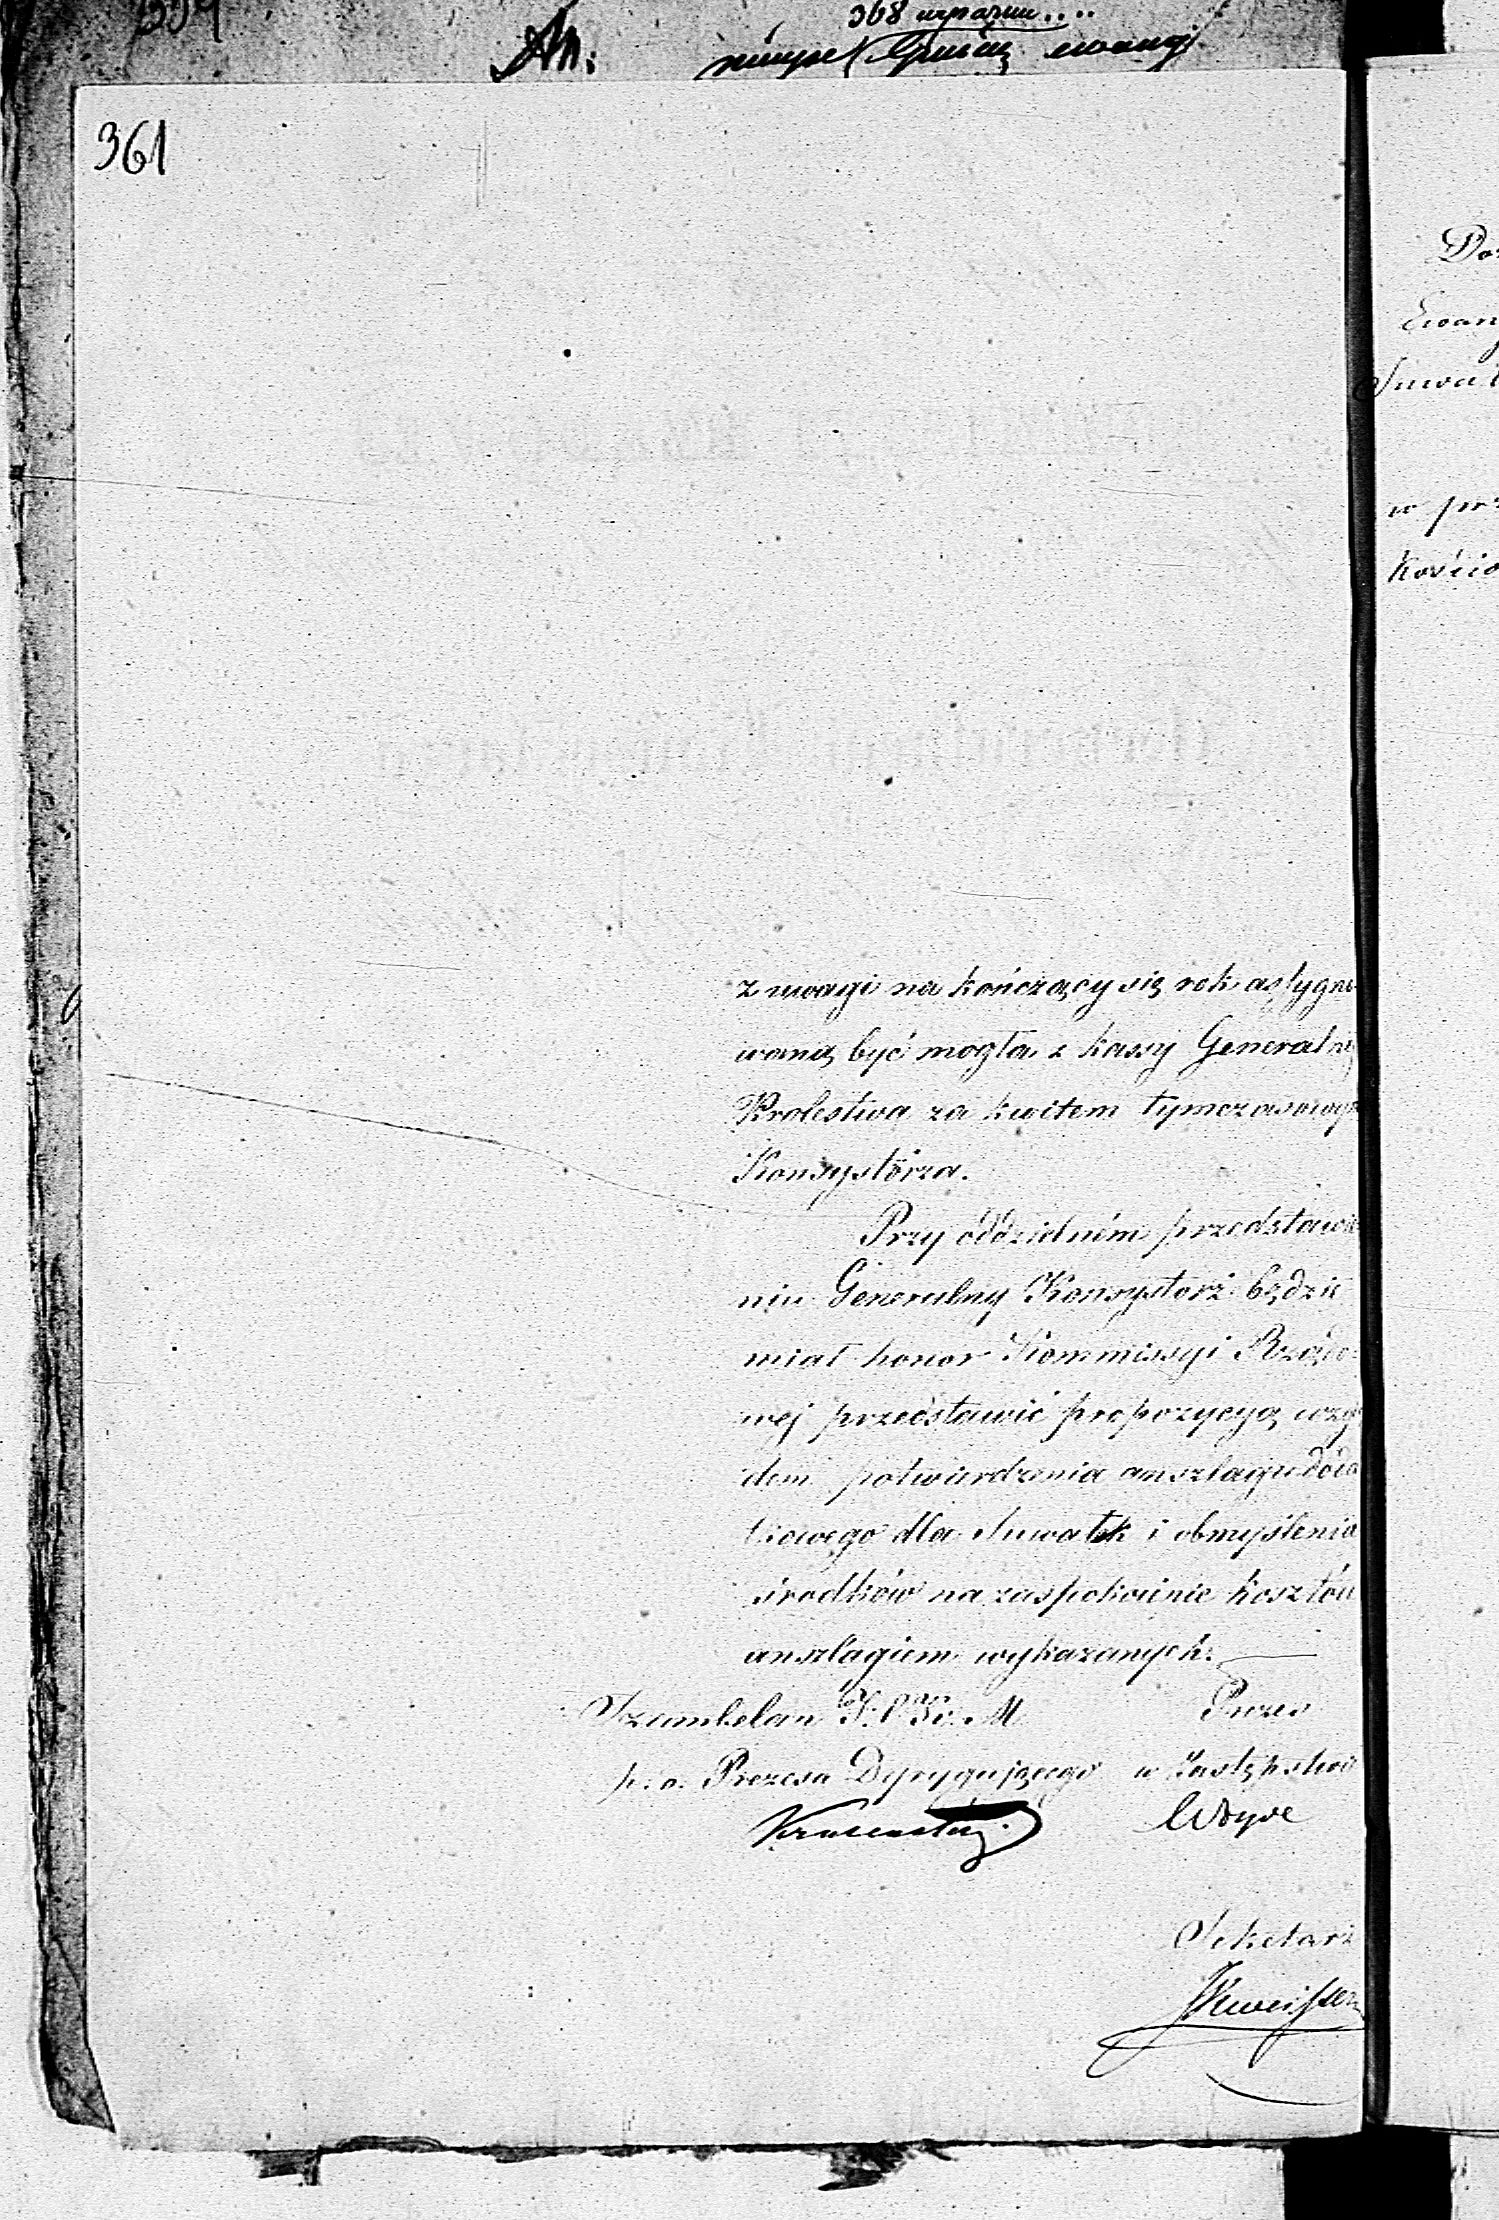 361
z uwagi na kończący się rok asygno
waną być mogła z kassy Generalnej
Krolestwa za kwitem tymczasowym
Konsystorza.
Przy oddzielném przedstawie
niu Generalny Konsystorz będzie
miał honor Kommissyi Rządo
wej przedstawić propozycyą wzglę
dem potwierdzenia anszlagu doda
tkowego dla Suwałk i obmyślenia
środków na zaspokoienie kosztów
anszlagiem wykazanych.
Szambelan J. C. K. M Prezes
p. o. Prezesa Dyrygującego w Zastępstwie
Krusenstern Woyde
Sekretarz
Do
Ewan
Suwał
w prz
Kościo